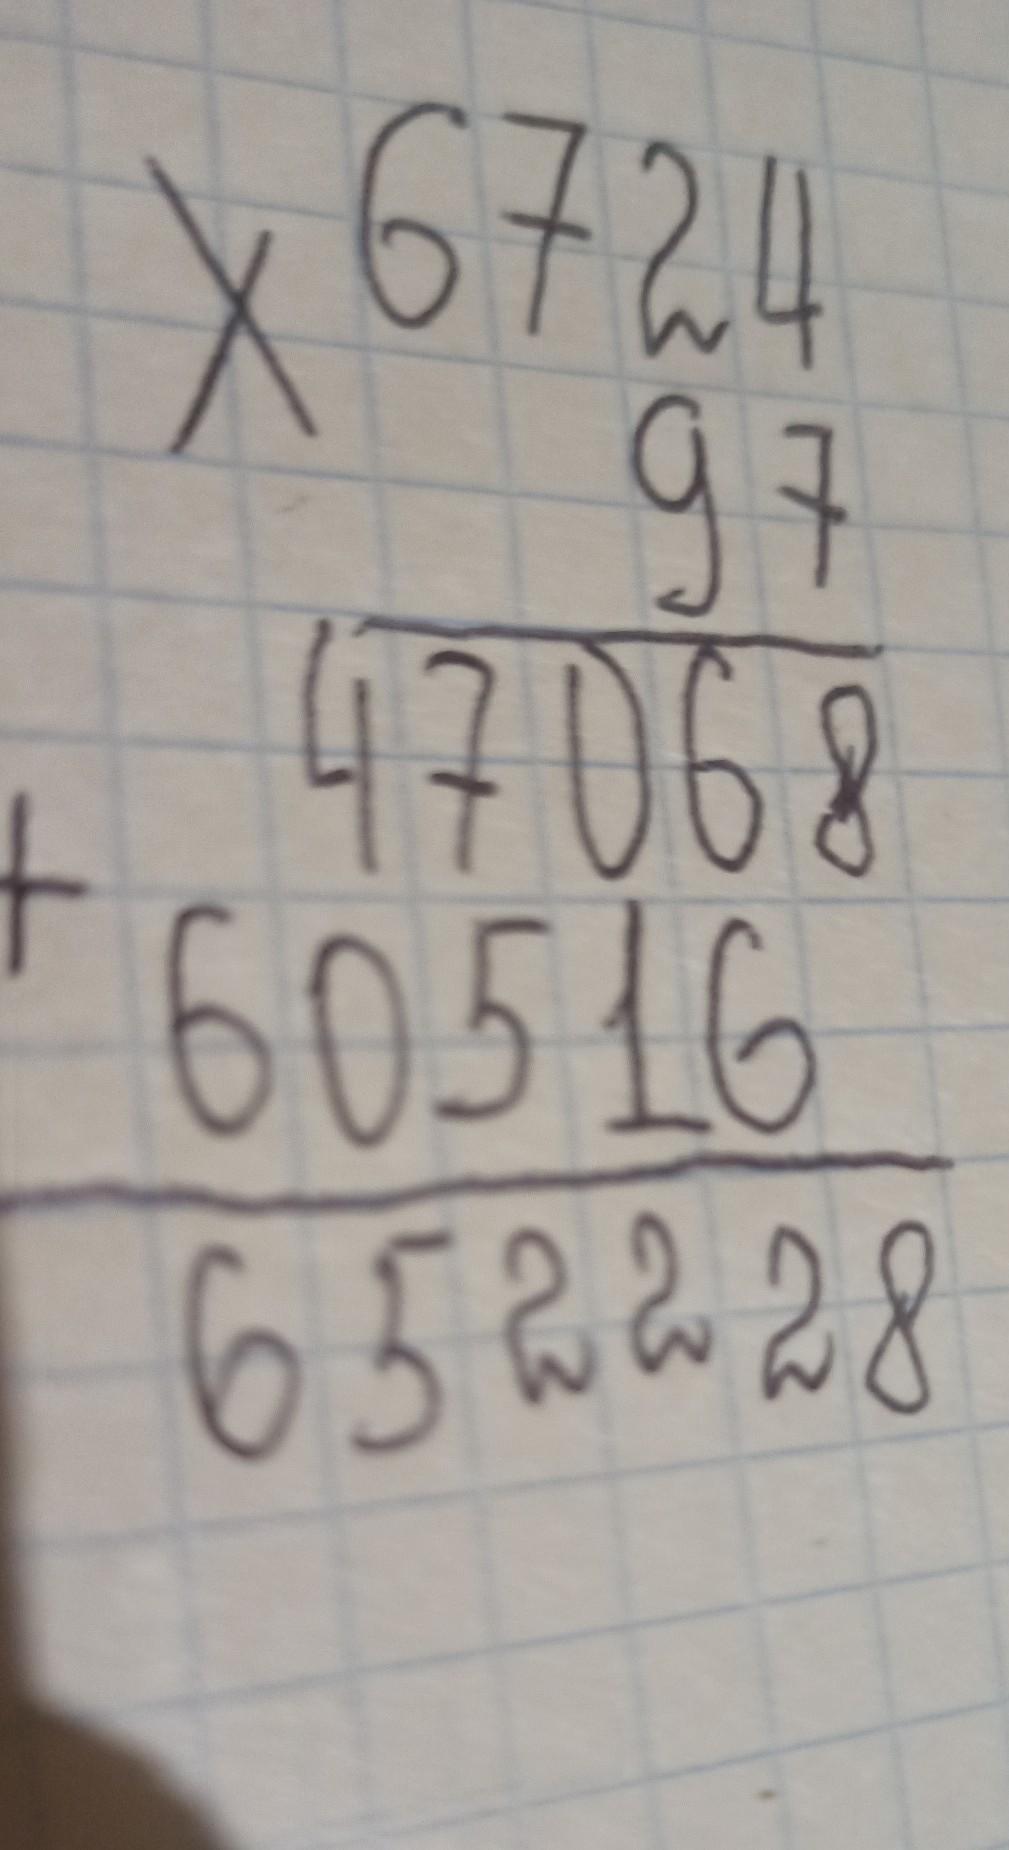 × 6724
97
47068
+ 60516
652228